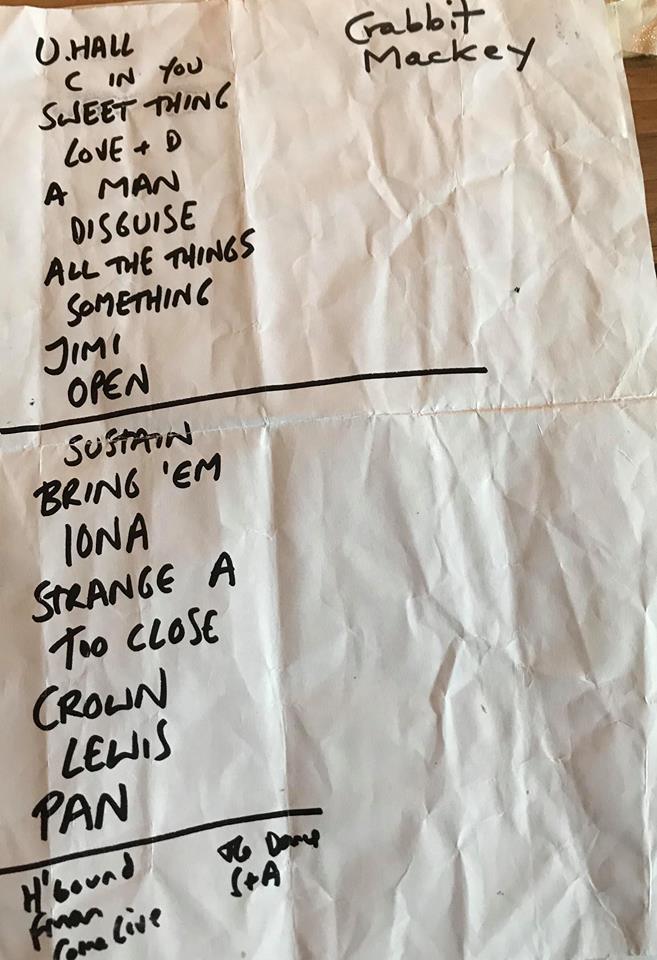 U.HALL
C IN YOU
SWEET THING
LOVE + D
A MAN
DISGUISE
ALL THE THINGS
SOMETHING
JIMI
OPEN
SUSTAIN
BRING 'EM
IONA
STRANGE A
TOO CLOSE
CROWN
LEWIS
PAN
H'bound
F'man
Come Live
S+A
Mackey